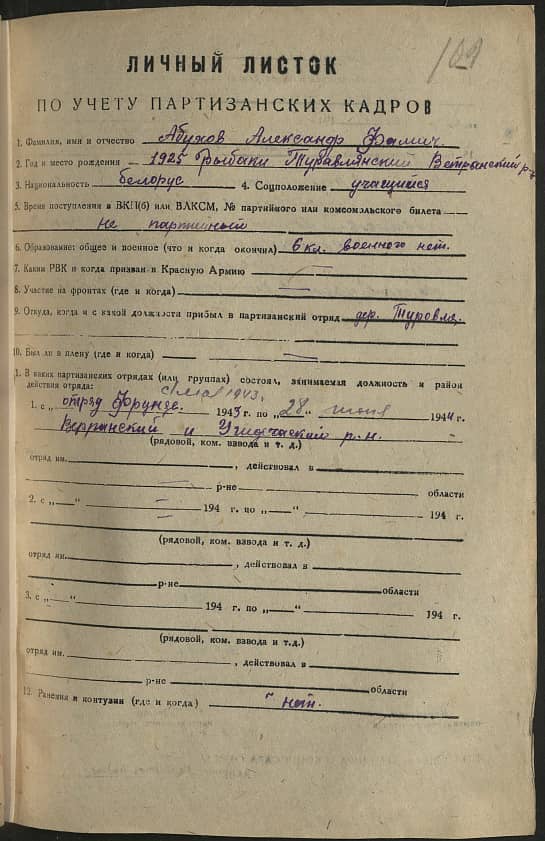 109
ЛИЧНЫЙ ЛИСТОК
ПО УЧЕТУ ПАРТИЗАНСКИХ КАДРОВ
1. Фамилия, имя и отчество Абухов Александр Фамич.
2. Год и место рождения – 1925 Рыбаки Туравлянский Ветрынский р-н
3. Национальность белорус 4. Соцположение учащийся
5. Время поступления в ВКП(б) или ВЛКСМ, № партийного или комсомольского билета –
не партийный
6. Образование: общее и военное (что и когда окончил) 6 кл. военного нет.
7. Каким РВК и когда призван в Красную Армию —
8. Участие на фронтах (где и когда) —
9. Откуда, когда и с какой должности прибыл в партизанский отряд дер. Туровля.
10. Был ли в плену (где и когда) —
1. В каких партизанских отрядах (или группах) состоял, занимаемая должность и район
действия отряда: с мая 1943.
1. с „ отряд Фрунзе. 1943 г. по „28" июня 1944 г.
Ветрынский и Ушачский р-н.
(рядовой, ком. взвода и т. д.)
отряд им. , действовал в
— р-не области
2. с „—" — 194 г. по „—" — 194 г.
(рядовой, ком. взвода и т. д.)
отряд им. , действовал в
р-не области
3. с „—" 194 г. по „—" 194 г.
(рядовой, ком. взвода и т.д.)
отряд им. , действовал в
р-не области
12. Ранения и контузии (где и когда) нет.